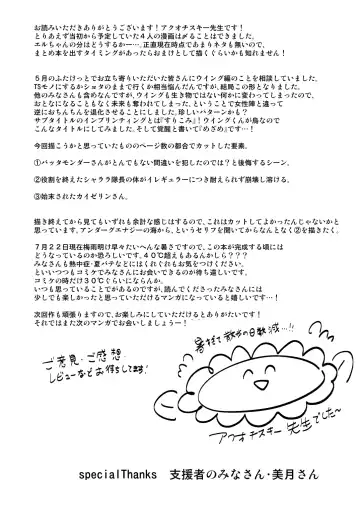 お読みいただきありがとうございます！アクオチスキー先生です！
とりあえず当初から予定していた４人の漫画は〆ることはできました。
エルちゃんの分はどうするかー…。正直現在時点であまりネタも無いので、
まとめ本を出すタイミングがあったらおまけとして描くぐらいかも知れません！
５月のふたけっとでお立ち寄りいただいた皆さんにウイング編のことを相談していました。
TSモノにするかショタのままで行くか相当悩んだんですが、結局この形となりました。
他のみなさんも含めなんですが、ウイングも生き物ではない何かに変わってしまったので、
おとなになることもなく未来も奪われてしまった、ということで女性陣と違って
逆におちんちんを退化させることにしました。珍しいパターンかも？
サブタイトルのインプリンティングとは『すりこみ』！ウイングくんが鳥なので
こんなタイトルにしてみました。そして覚醒と書いて『めざめ』です…！
今回描こうかと思っていたもののページ数の都合でカットした要素。
①バッタモンダーさんがとんでもない間違いを犯したのでは？と後悔するシーン。
②役割を終えたシャララ隊長の体がイレギュラーにつき耐えられず崩壊し溶ける。
③始末されたカイゼリンさん。
描き終えてから見てもいずれも余計な感じはするので、これはカットしてよかったんじゃないかと
思っています。アンダーグエナジーの海から、というセリフを聞いてからなんとなく②を描きたく。
７月２２日現在梅雨明け早々たいへんな暑さですので、この本が完成する頃には
どうなっているのか恐ろしいです。４０℃超えもあるんかしら？？？
みなさんも熱中症・夏バテなどにはくれぐれもお気をつけください。
といいつつもコミケでみなさんにお会いできるのが待ち遠しいです。
コミケの時だけ３０℃ぐらいにならんか。
いつも思っていることであるのですが、読んでくださったみなさんには
少しでも楽しかったと思っていただけるマンガになっていると嬉しいです…！
次回作も頑張りますので、お楽しみにしていただけるとありがたいです！
それではまた次のマンガでお会いしましょうー！
ご意見・ご感想
レビューなどお待ちしてます！
暑すぎて散歩の日数減…!!
アクオチスキー先生でした〜
specialThanks 支援者のみなさん・美月さん